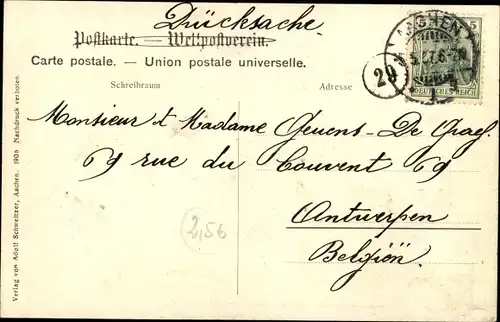 Drücksache
Postkarte. — Weltpostverein.
Carte postale. — Union postale universelle.
Schreibraum
Adresse
AACHEN
5
6-7N
DEUTSCHES REICH
20
Monsieur et Madame Geuens-De Graef
69 rue du Couvent 69
Antwerpen
Belgiën
2,56
Verlag von Adolf Schweitzer, Aachen. 1906 Nachdruck verboten